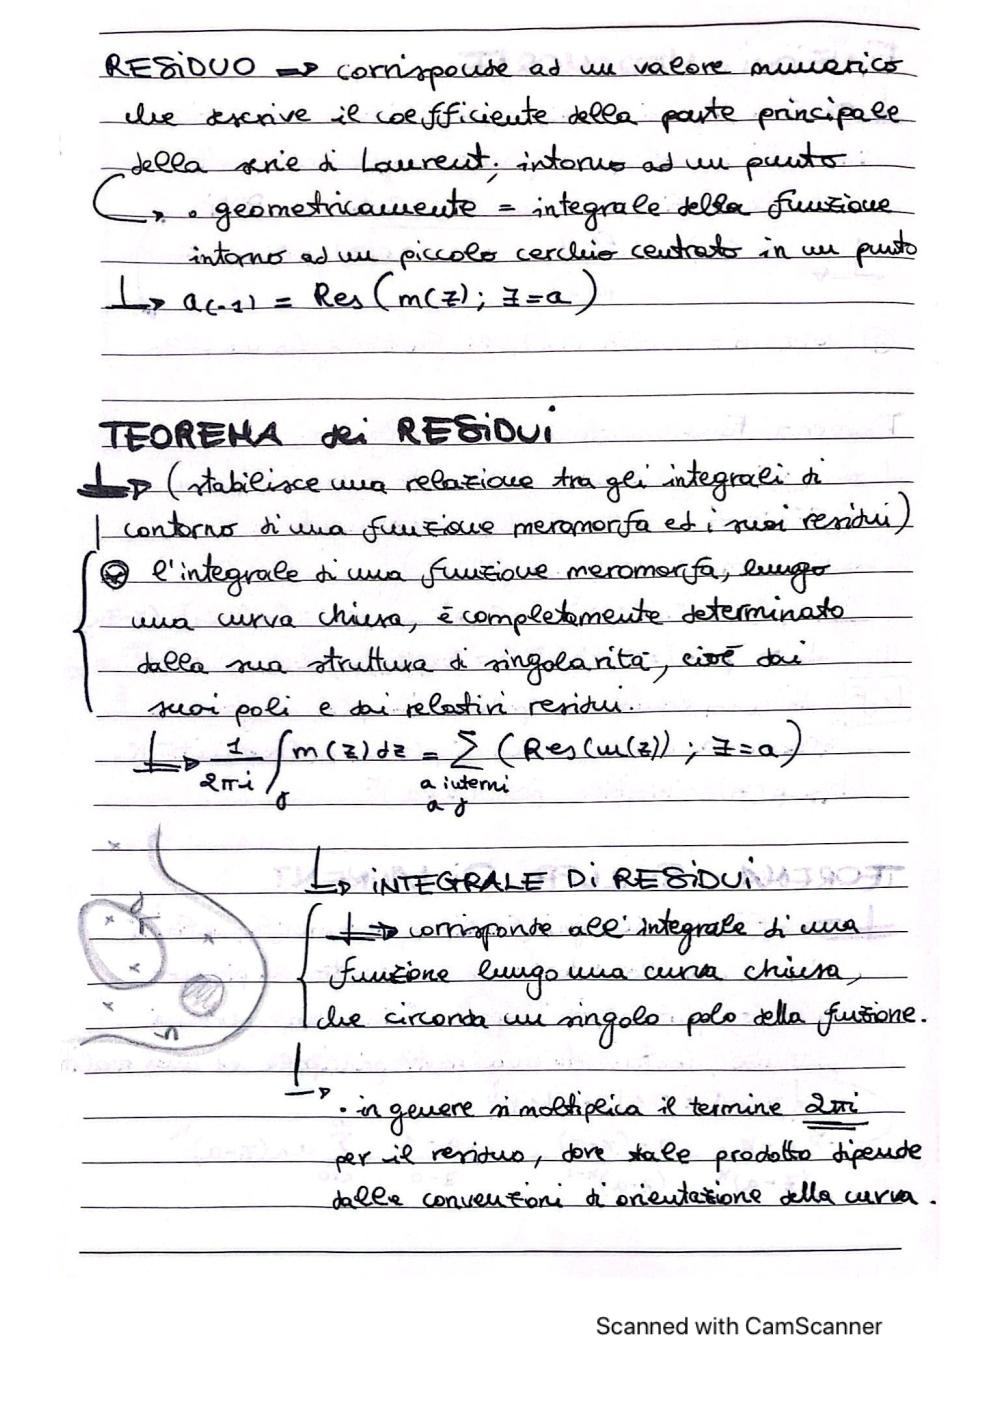 RESiDUO → corrisponde ad un valore numerico
che descrive il coefficiente della parte principale
della serie di Laurent, intorno ad un punto
↳ • geometricamente = integrale della funzione
intorno ad un piccolo cerchio centrato in un punto
↳ a(-1) = Res (m(z); z=a)
TEOREMA dei RESiDUi
↳ (stabilisce una relazione tra gli integrali di
contorno di una funzione meromorfa ed i suoi residui)
l'integrale di una funzione meromorfa, lungo
una curva chiusa, è completamente determinato
dalla sua struttura di singolarità, cioè dai
suoi poli e dai relativi residui.
↳ 1/2πi ∫γ m(z) dz = Σ (Res(m(z)); z=a)
a interni
a γ
↳ iNTEGRALE Di RESiDUi
↳ corrisponde all'integrale di una
funzione lungo una curva chiusa,
che circonda un singolo polo della funzione.
↳ • in genere si moltiplica il termine 2πi
per il residuo, dove tale prodotto dipende
dalle convenzioni di orientazione della curva.
Scanned with CamScanner